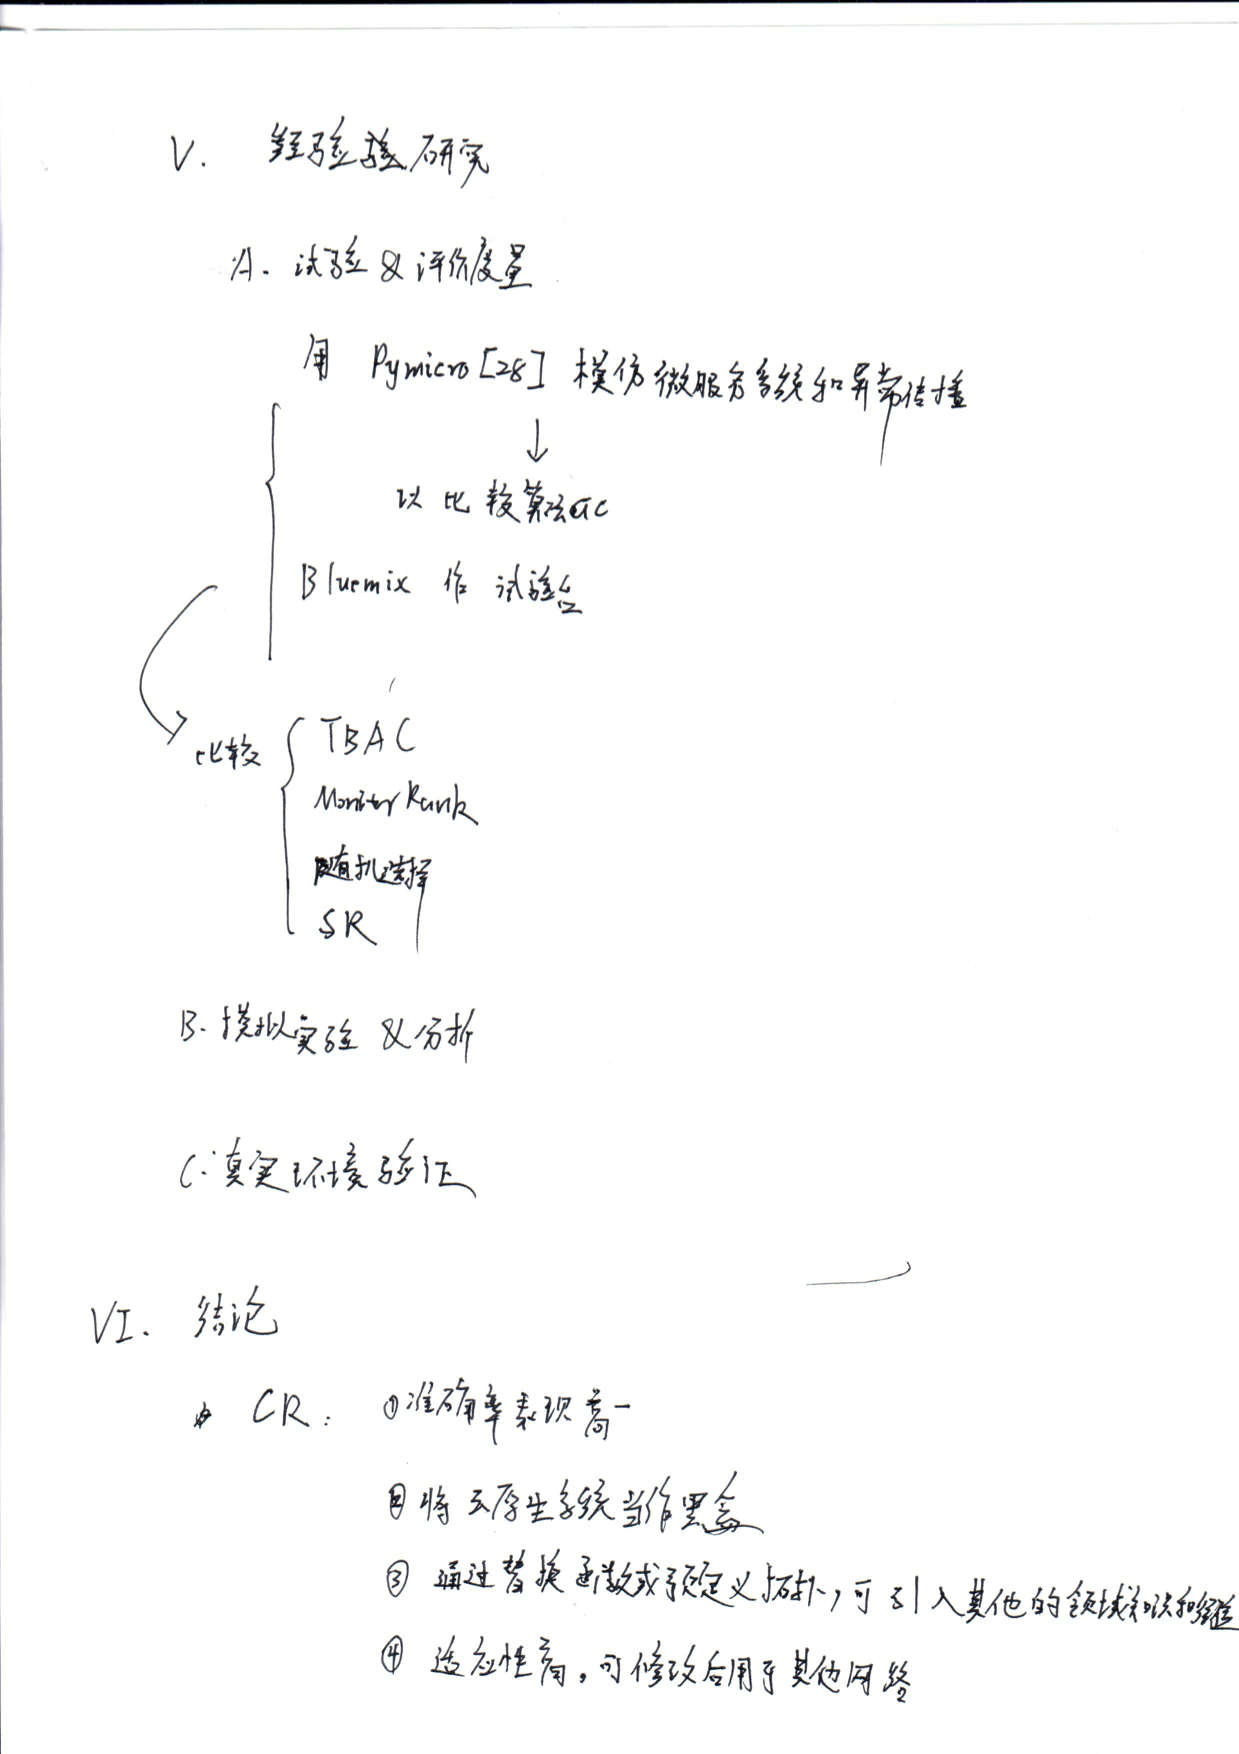 V. 经验研究
A. 试验 & 评价度量
用 Pymicro [28] 模仿微服务系统和异常传播
↓
以比较算法
Bluemix 作 试验台
比较
TBAC
MonitorRank
随机选择
SR
B. 模拟实验 & 分析
C. 真实环境验证
VI. 结论
CR: ①准确率表现
②将云原生系统当作黑盒
③ 通过替换函数或预定义拓扑,可引入其他的领域知识和经验
④ 适应性高,可修改后用于其他网络